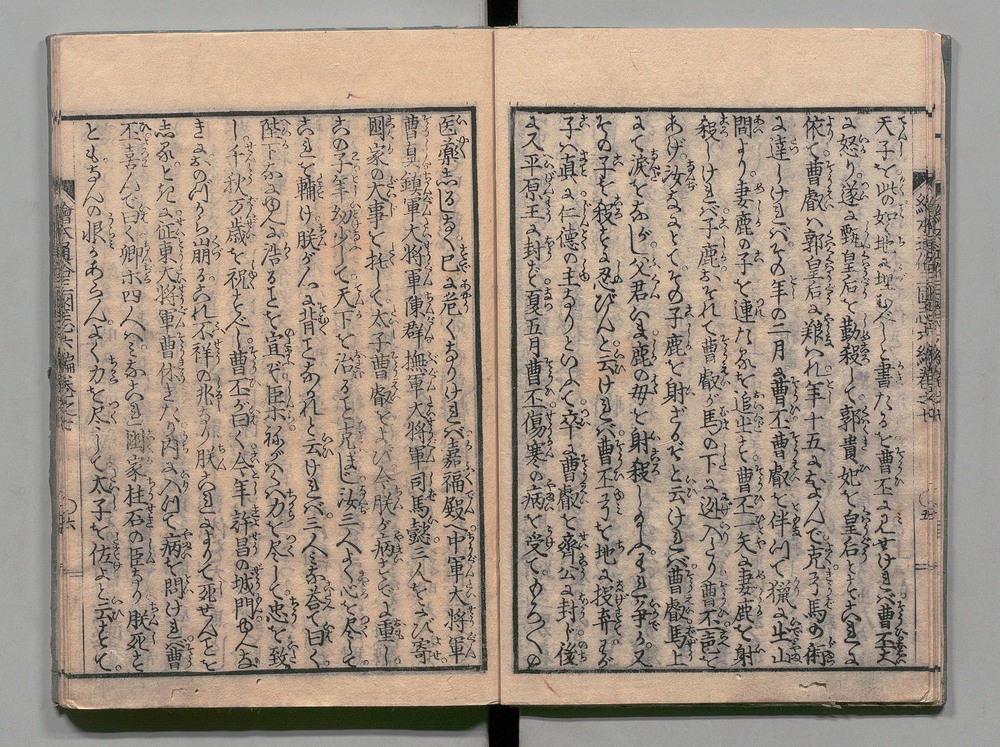 天子を此の如く地に埋むべしと書たるを曹丕に見せければ曹丕大
に怒り遂に甄皇后を勒殺して郭貴妃を皇后とすこれに
依て曹叡は郭皇后に養はれ年十五におよんで克弓馬の術
に達しければその年の二月に曹丕曹叡を伴ひて獵に出山
間より妻鹿の子を連たるを追出す曹丕一矢に妻鹿を射
殺しければ子鹿おそれて曹叡が馬の下に迯入たり曹丕声を
あげ汝なんとてその子鹿を射ざるぞと云ければ曹叡馬上
にて涙をながし父君は鹿の母を射殺し給へり争か又
その子を殺に忍びんと云ければ曹丕弓を地に投弃わが
子は真に仁徳の主なりといふて卒に曹叡を齊公に封じ後
に又平原王に封ず夏五月曹丕傷寒の病を受てもろ〱の
医藥しるしなく已に危くなりければ嘉福殿へ中軍大将軍
曹真鎮軍大将軍陳群撫軍大将軍司馬懿三人をよび寄
國家の大事を托して太子曹叡をよび今朕が病すでに重し
この子年幼少して天下を治ること克まじ汝三人よく心を尽して
これを輔け朕が心に背ことなかれと云ければ三人みな荅て曰く
陛下なにゆへに浩ることを宜ぞ臣ホ称がはくは力を尽して忠を致
し千秋万歳を祝すべし曹丕が曰く今年許昌の城門ゆへな
きにおのづから崩るこれ不祥の兆なり朕これによりて死せんことを
しる処ときに征東大将軍曹休きたり内に入りて病を問ければ曹
丕喜んで曰く卿ホ四人はみなこれ國家柱石の臣なり朕死す
ともなんの恨かあらんよく力を尽して太子を佐よと云すで